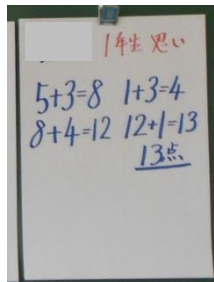 1年生思い
5+3=8 1+3=4
8+4=12 12+1=13
13点